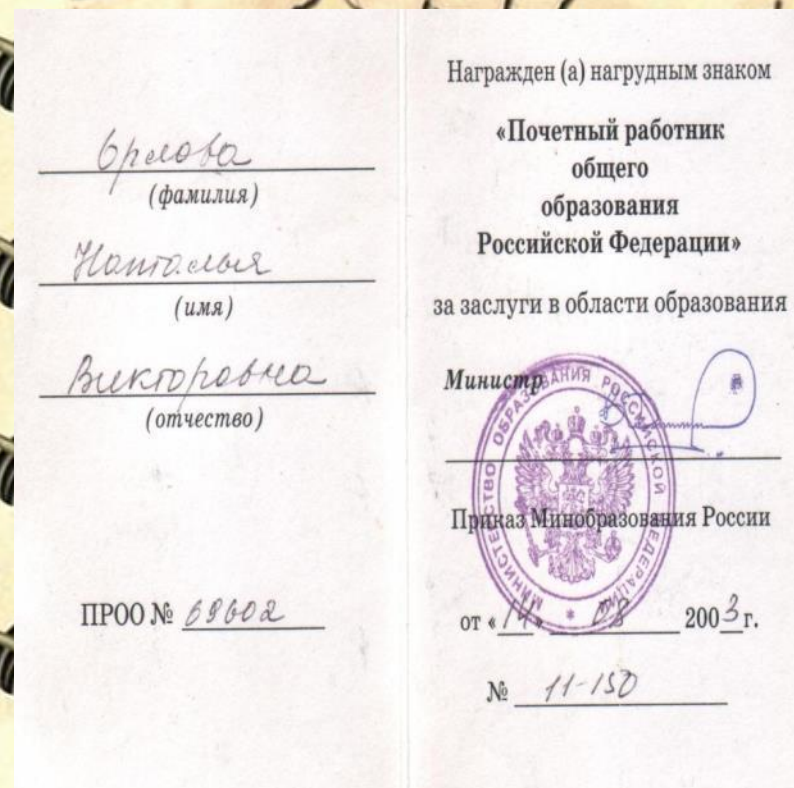 Орлова
(фамилия)
Наталья
(имя)
Викторовна
(отчество)
ПРОО № 69602
Награжден (а) нагрудным знаком
«Почетный работник
общего
образования
Российской Федерации»
за заслуги в области образования
Министр
МИНИСТЕРСТВО ОБРАЗОВАНИЯ РОССИЙСКОЙ ФЕДЕРАЦИИ
Приказ Минобразования России
от «14» 2003 г.
№ 11-150